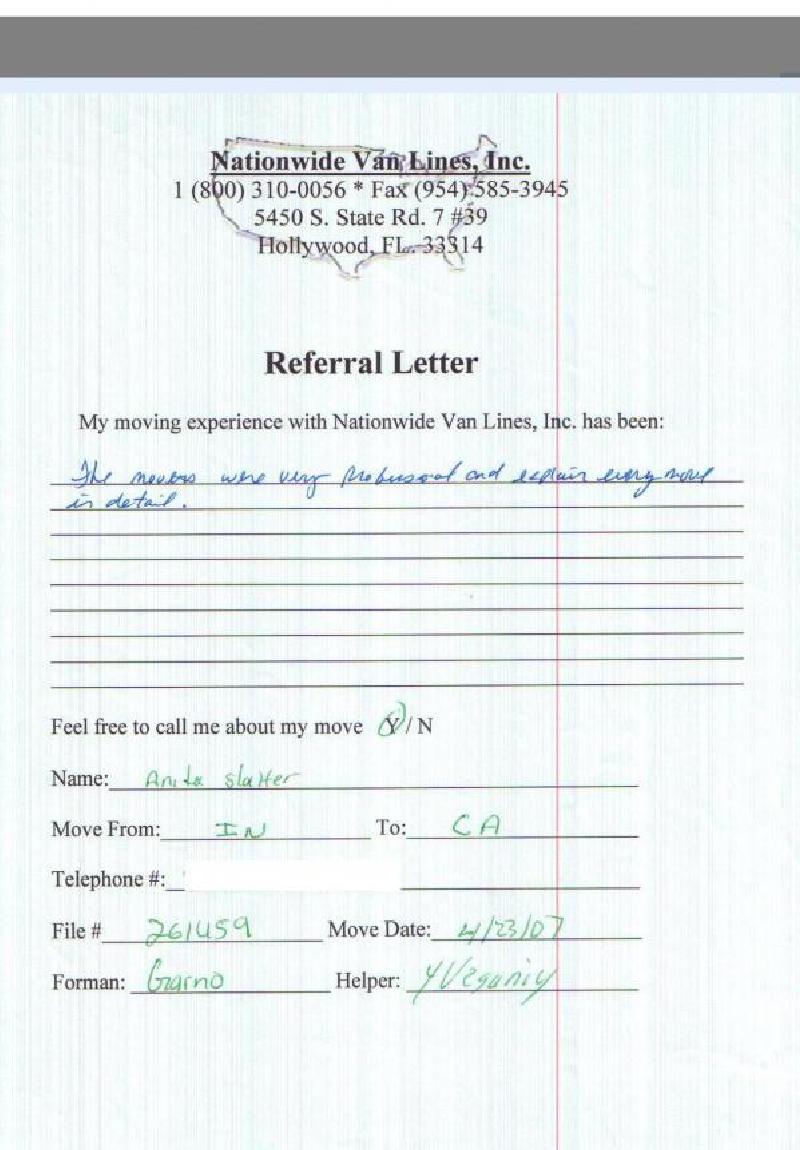 Nationwide Van Lines, Inc.
1 (800) 310-0056 * Fax (954) 585-3945
5450 S. State Rd. 7 #39
Hollywood, FL. 33314
Referral Letter
My moving experience with Nationwide Van Lines, Inc. has been:
The movers were very and explain every move
in detail.
Feel free to call me about my move Y / N
Name: Anita Slatter
Move From: IN To: CA
Telephone #:
File # 261459 Move Date: 4/23/07
Forman: Helper: